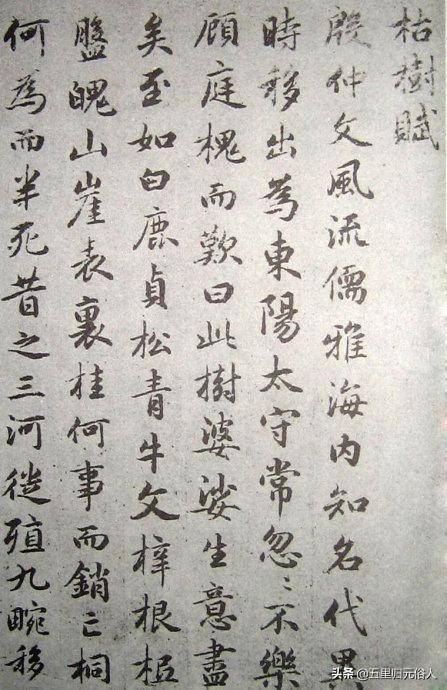 枯樹賦
殷仲文風流儒雅海内知名代異
時移出為東陽太守常忽〻不樂
顧庭槐而歎曰此樹婆娑生意盡
矣至如白鹿貞松青牛文梓根柢
盤魄山崖表裏桂何事而銷亡桐
何為而半死昔之三河徙殖九畹移
头条 @五里归元俗人